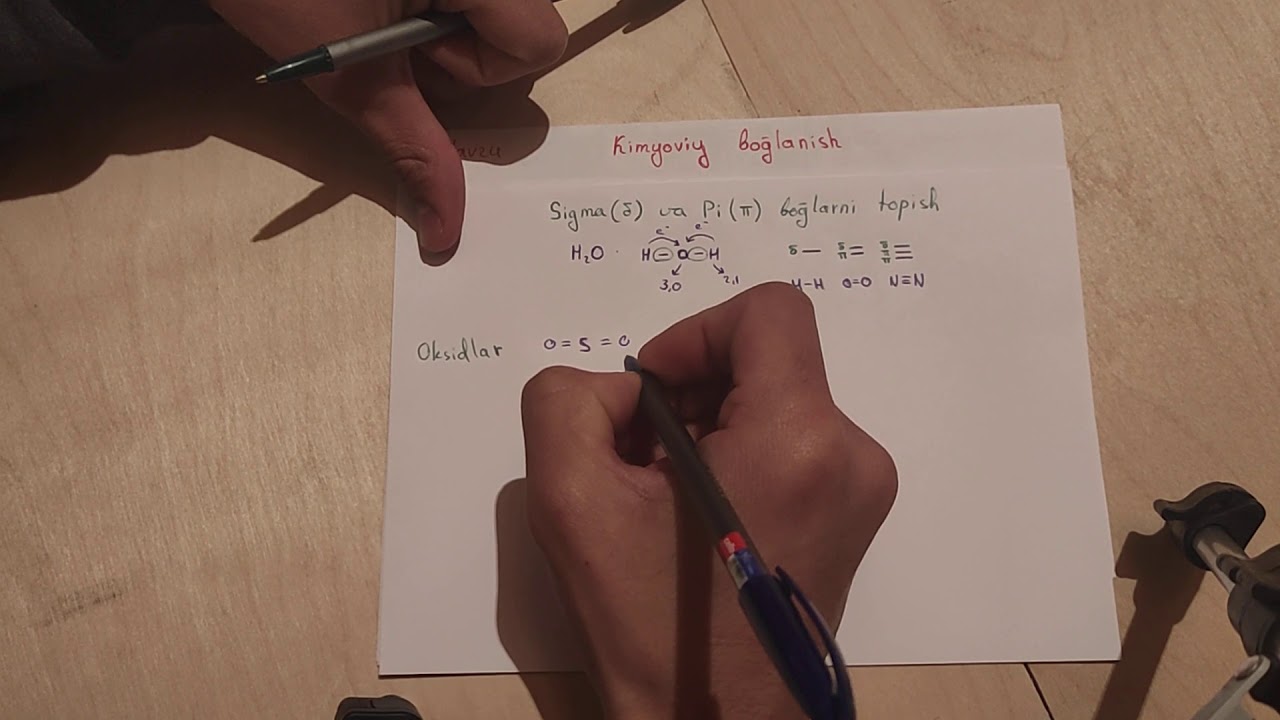 Kimyoviy boğlanish
Sigma(δ) va Pi(π) boğlarni topish
H₂O · H – O – H e⁻ e⁻ δ — δ π = δ π π ≡
3,0 2,1 H–H O=O N≡N
Oksidlar O = S = O